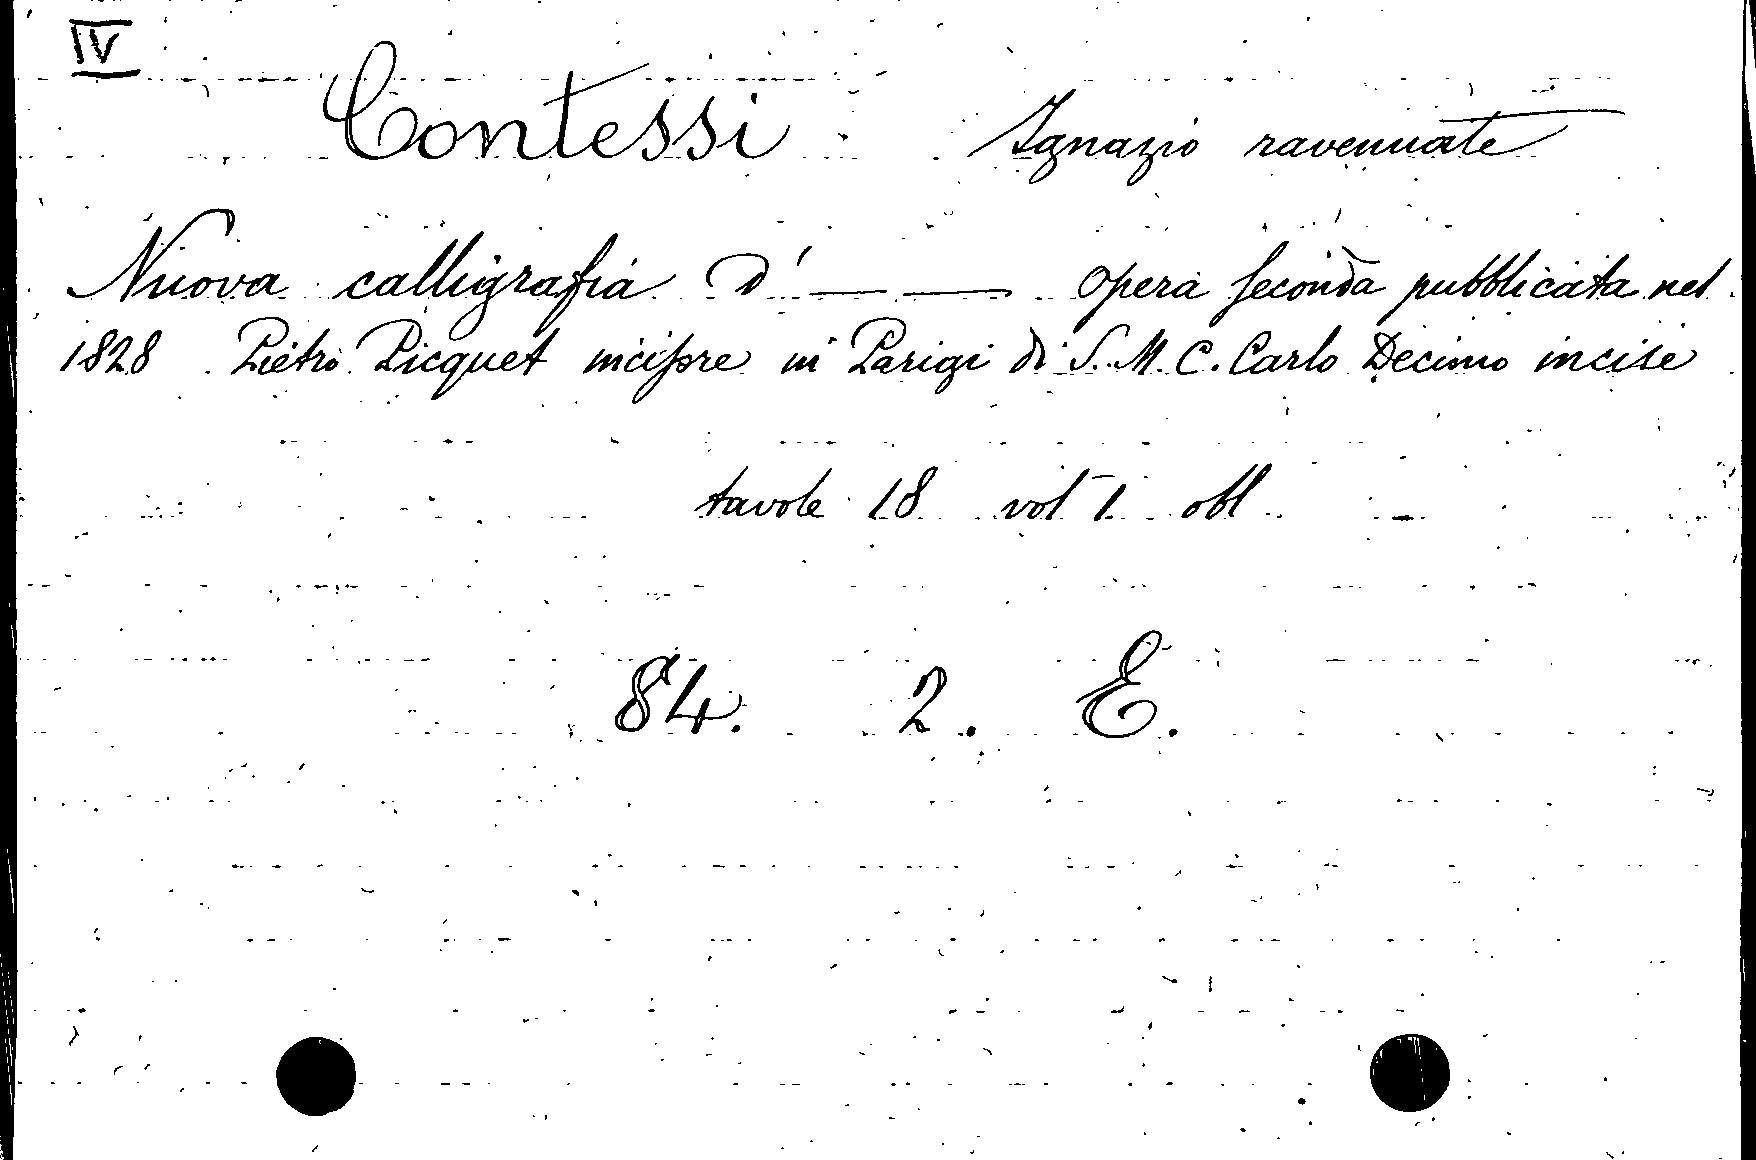 IV
Contessi Ignazio ravennate
Nuova calligrafia D' — — opera seconda pubblicata nel
1828 Pietro Picquet incissre in Parigi di S. M. C. Carlo Decimo incise
tavole 18 vol 1 obl
84. 2. E.